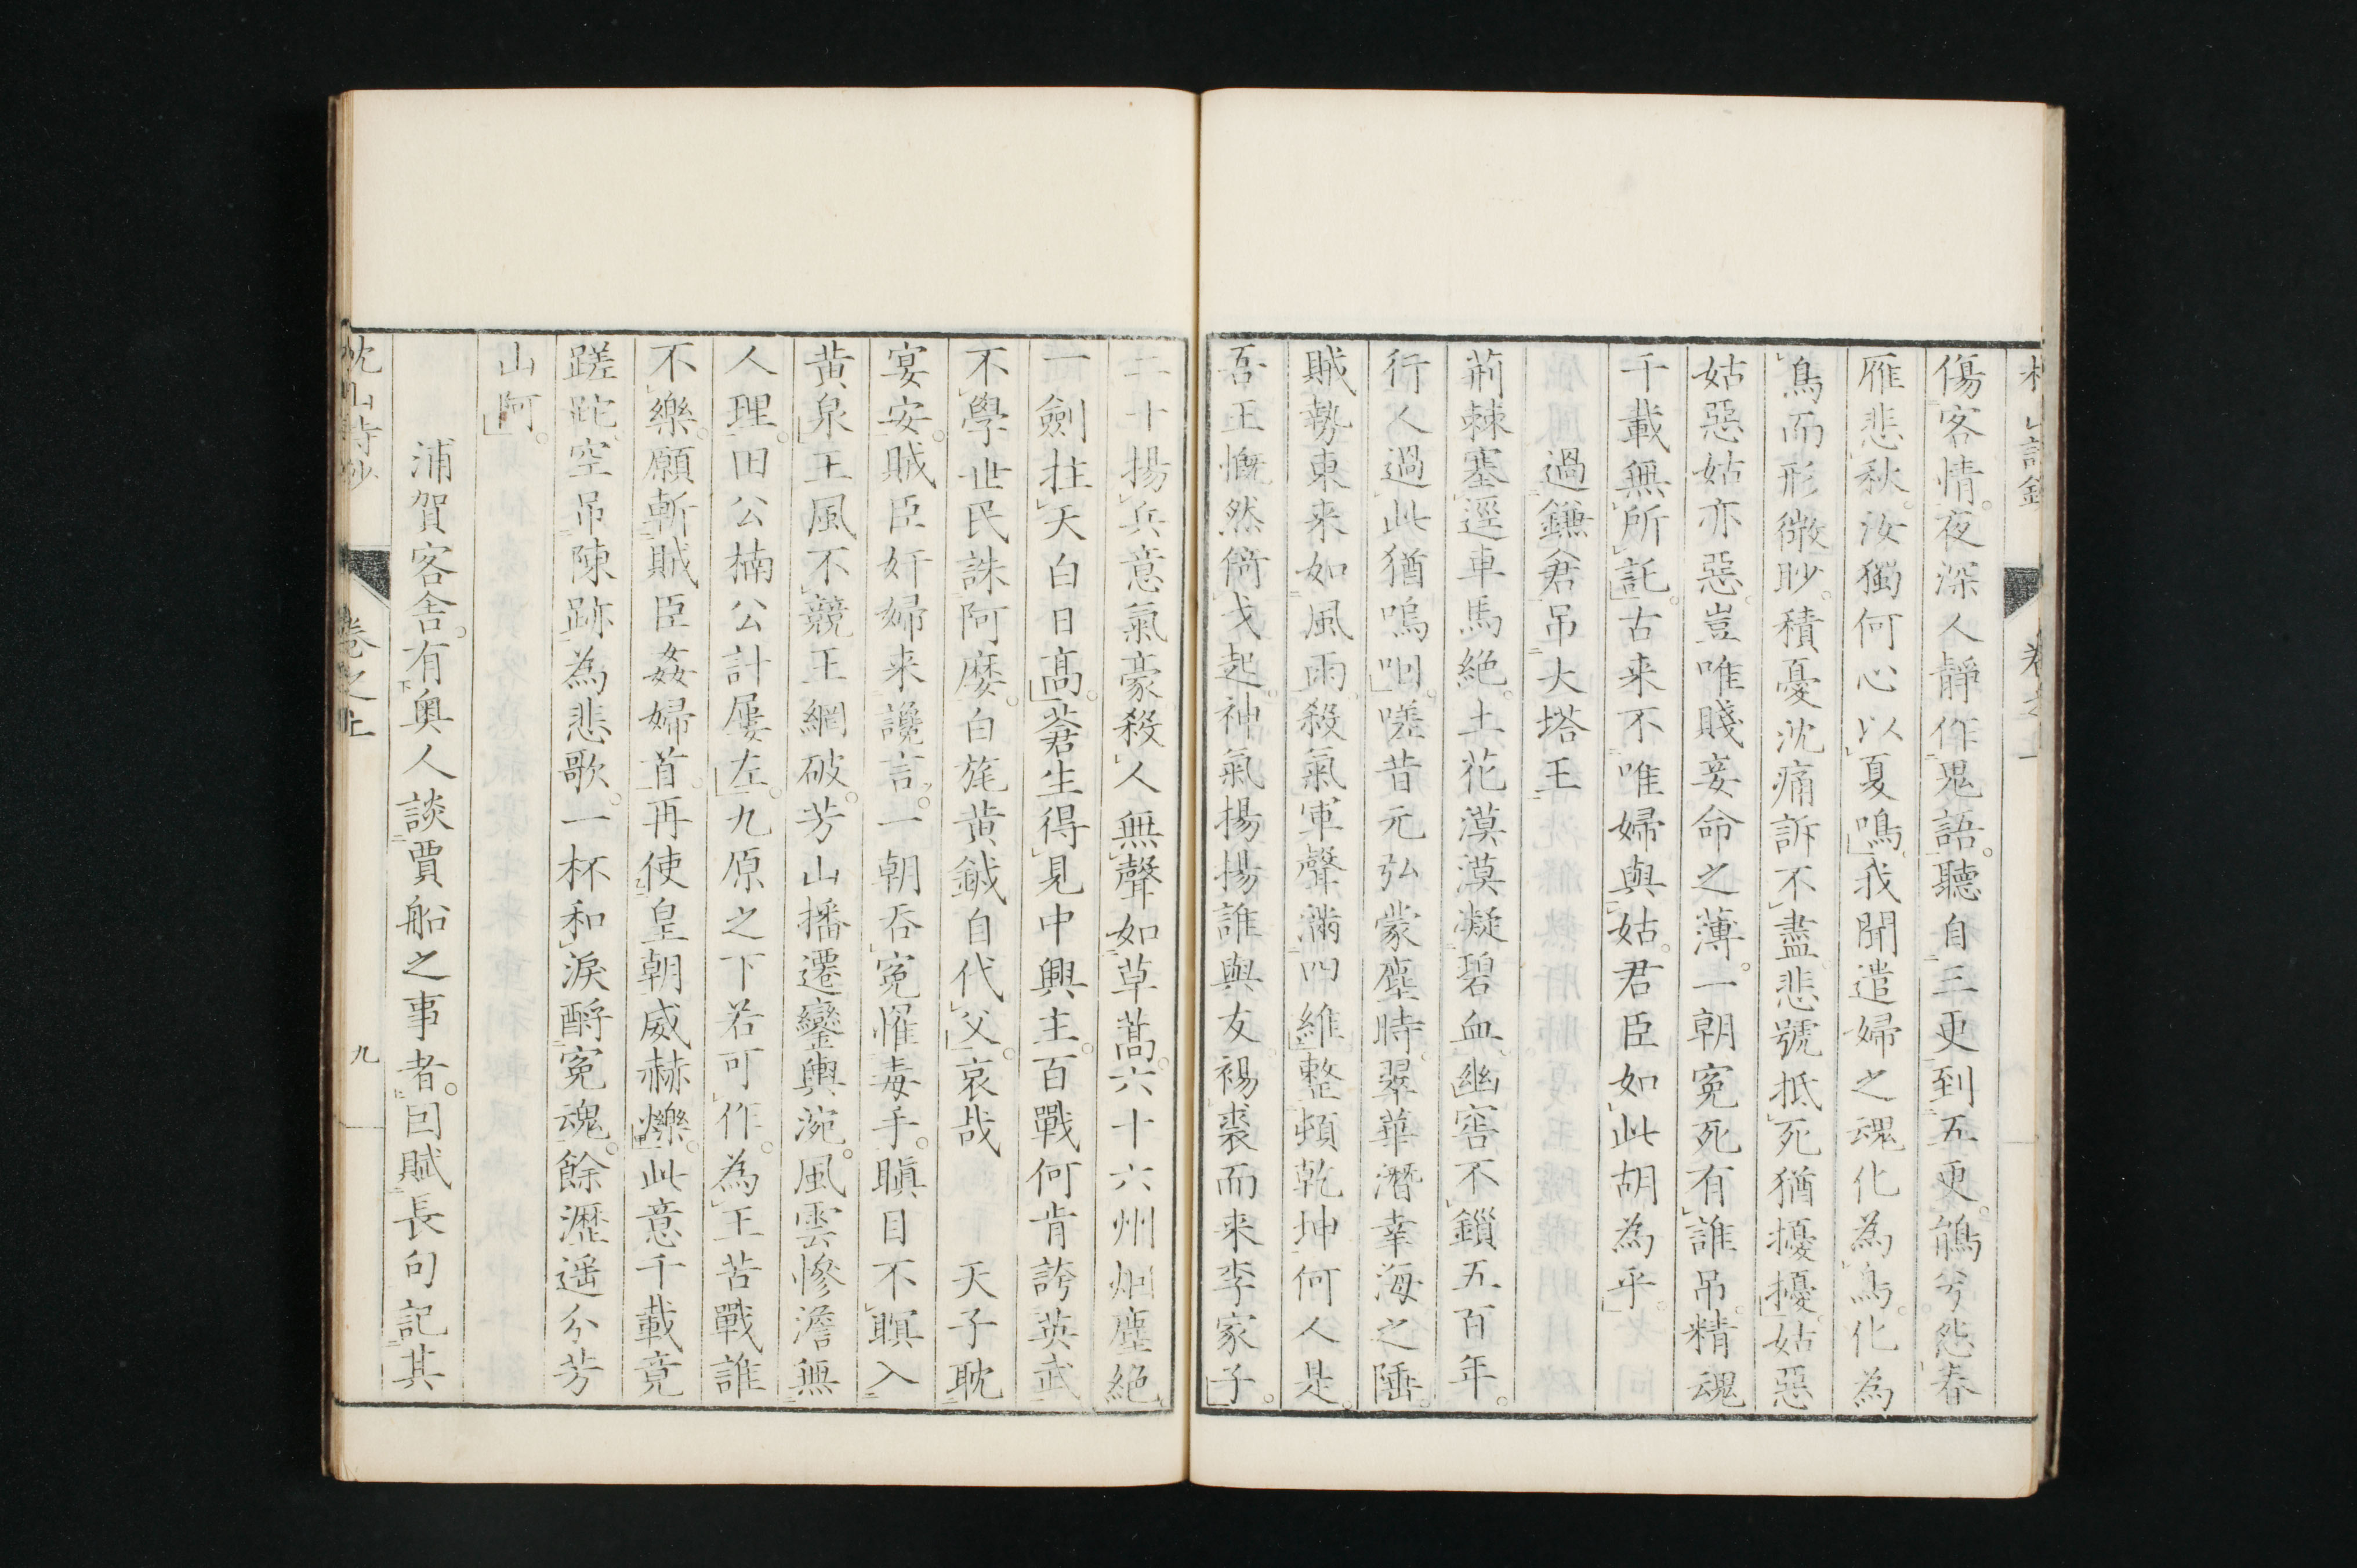 傷客情。夜深人靜作鬼語。聽自三更到五更。鵑兮怨春
雁悲秋。汝獨何心以夏鳴。我聞遣婦之魂化為鳥。化為
鳥而形微眇。積憂沈痛訴不盡。悲號抵死猶擾擾。姑惡
姑惡姑亦惡。豈唯賤妾命之薄。一朝冤死有誰吊。精魂
千載無所託。古来不唯婦與姑。君臣如此胡為乎。
過鎌倉吊大塔王
荊棘塞逕車馬絶。土花漠漠凝碧血。幽窖不鎖五百年。
行人過此猶嗚咽。嗟昔元弘蒙塵時。翠華潛幸海之陲。
賊勢東来如風雨。殺氣軍聲滿四維。整頓乾坤何人是。
吾王慨然倚戈起。神氣揚揚誰與友。裼裘而来李家子。
二十揚兵意氣豪。殺人無聲如草蒿。六十六州烟塵絶。
一劍拄天白日高。蒼生得見中興主。百戰何肯誇英武。
不學世民誅阿麼。白旄黄鉞自代父。哀哉　天子耽
宴安。賊臣奸婦来讒言。一朝吞冤罹毒手。瞋目不瞑入
黄泉。王風不競王網破。芳山播遷鑾輿涴。風雲慘澹無
人理。田公楠公計屢左。九原之下若可作。為王苦戰誰
不樂。願斬賊臣姦婦首。再使皇朝威赫爍。此意千載竟
蹉跎。空吊陳跡為悲歌。一杯和淚酹冤魂。餘瀝遥分芳
山阿。
浦賀客舎。有奥人談賈船之事者。因賦長句記其
枕山詩鈔 卷之上 九